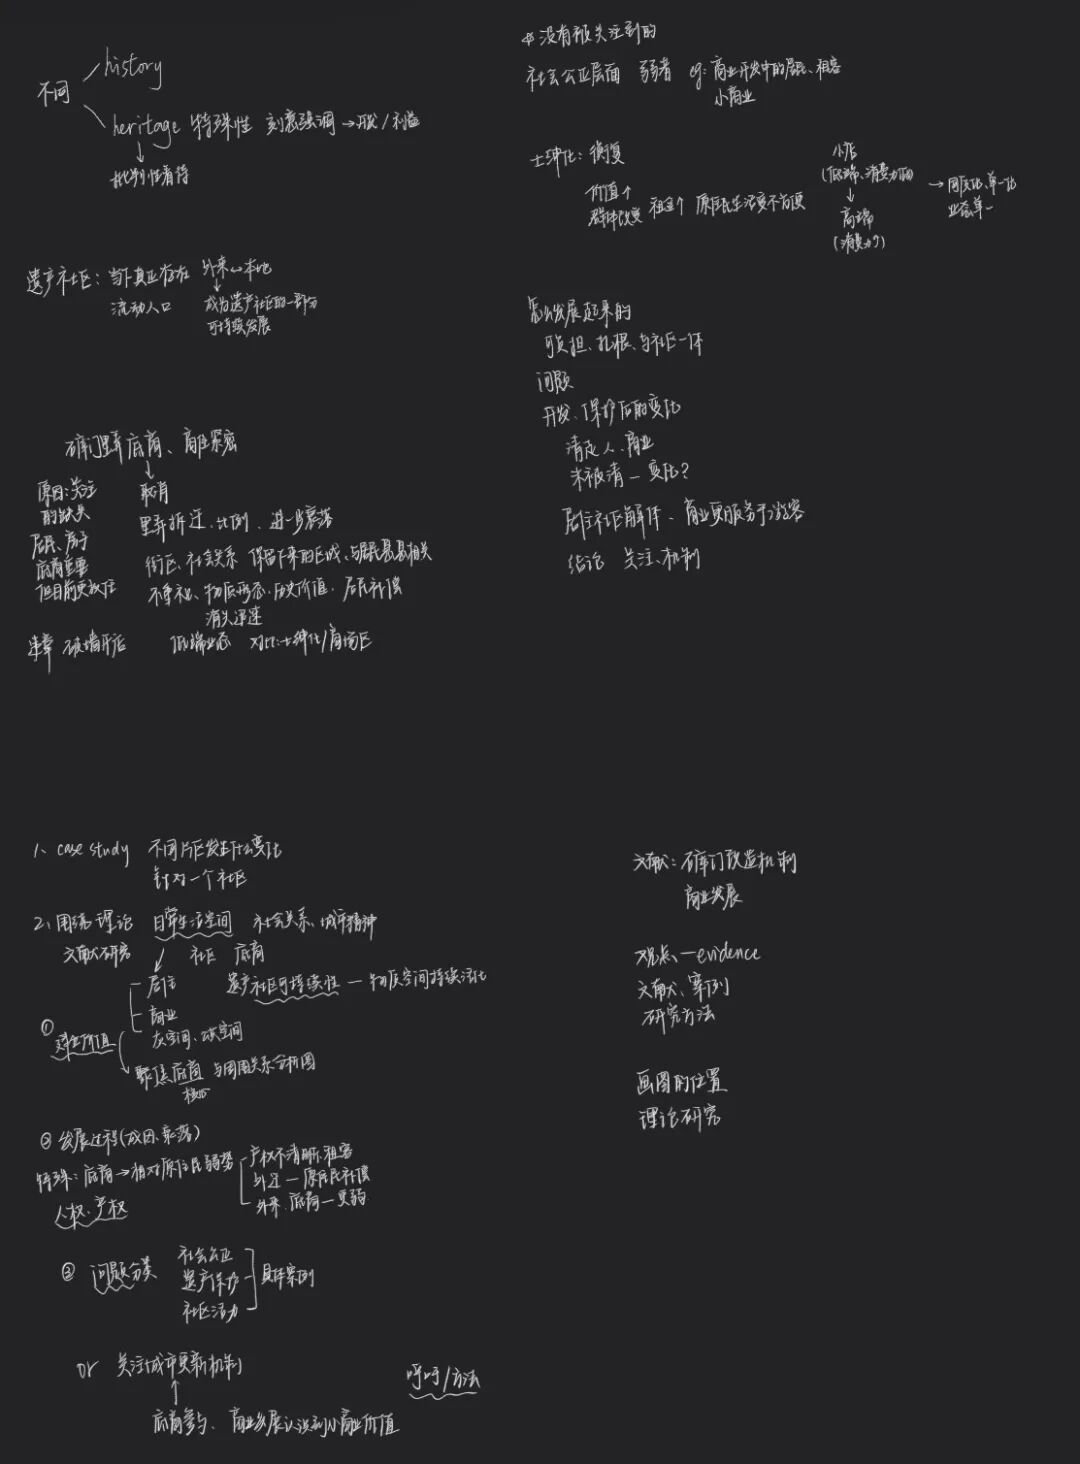 不同
history
heritage 特殊性 刻意强调→开发/利益
批判性看待
遗产社区：当下真正存在 外来→本地
流动人口 成为遗产社区的一部分
可持续发展
石库门里弄 底商、商住紧密
原因：关注的缺失
取消
里弄拆迁、比例、进一步衰落
居民、房子
底商重要
街区、社会关系 保留下来的区域、与居民息息相关
但目前更
不事、物质形态、历史价值、居民补偿
消失迅速
违章 破墙开店 低端业态 对比：士绅化/商场区
*没有被关注到的
社会公正层面 弱者 eg：商业开发中的居民、租客
小商业
士绅化：衡复
价值↑
群体改变 租金↑ 原住民生活变不方便
小店
(低端、消费力低)
↓
高端
(消费力↑)
→同质化、单一化
业态单一
怎么发展起来的
可负担、扎根、与社区一体
问题
开发、保护后的变化
清走人、商业
未被清—变化？
居住社区解体、商业更服务于游客
结论 关注、机制
1、case study 不同片区发生什么变化
针对一个社区
2、围绕理论 日常生活空间 社会关系、城市精神
文献研究 社区 底商
居住 遗产社区可持续性—物质空间持续活化
商业
灰空间、
① 建立价值
聚焦底商 与周围关系分析图
核心
② 发展过程(成因、衰落)
特殊：底商→相对原住民弱势
产权不清晰、租客
外迁—原居民补偿
外来、底商—更弱
人权、产权
③ 问题分类
社会公正
遗产保护
社区活力
具体案例
or 关注城市更新机制
呼吁/方法
底商参与、商业发展认识到小商业价值
文献：石库门改造机制
商业发展
观点—evidence
文献、案例
研究方法
画图的位置
理论研究